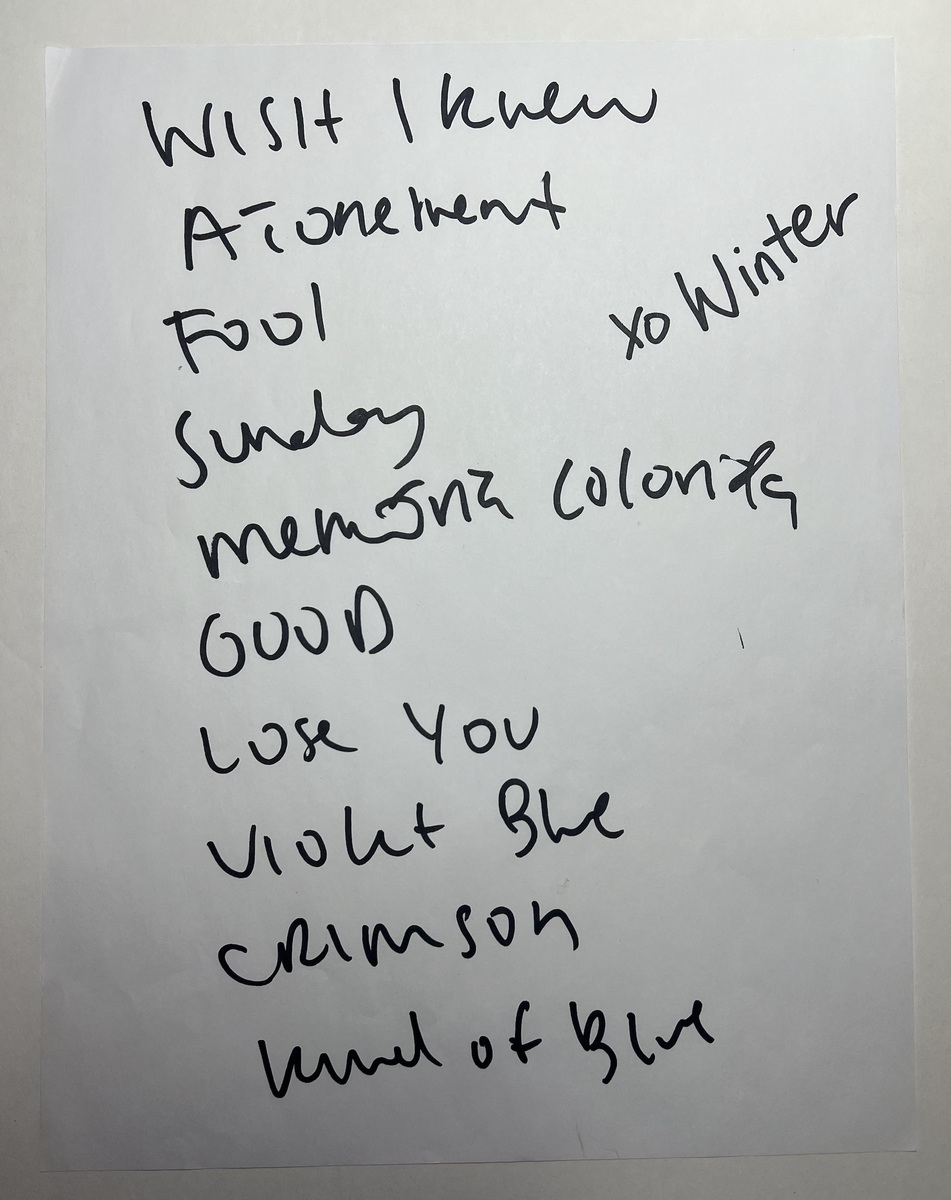 WISH I knew
Atonement
xo Winter
Fool
Sunday
memória colorida
GOOD
Lose You
Violet Blue
CRIMSON
kind of Blue